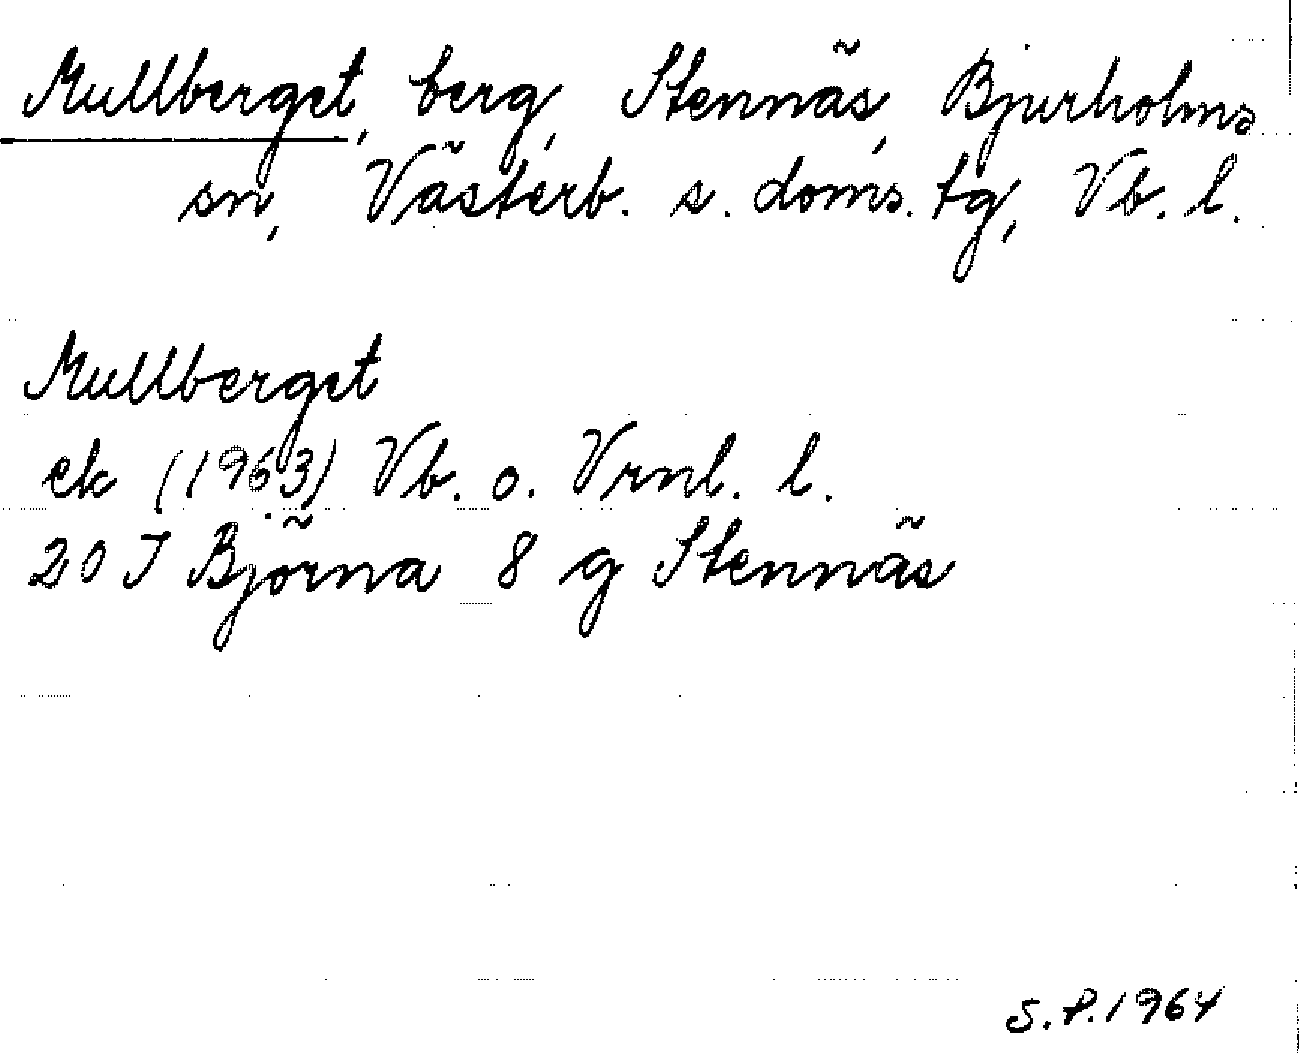 Mullberget, berg, Stennäs, Bjurholms
sn, Västerb. s. doms. tg, Vb. l.
Mullberget
ek (1963) Vb. o. Vrnl. l.
20 J Björna 8 g Stennäs
S.P. 1964